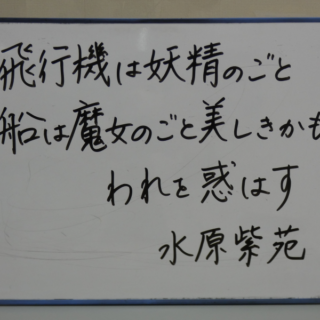 飛行機は妖精のごと
船は魔女のごと美しきかも
われを惑はす
水原紫苑